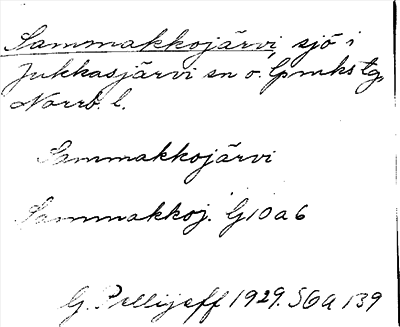 Sammakkojärvi, sjö i
Jukkasjärvi sn o. lpmks tg,
Norrb. l.
Sammakkojärvi
Sammakkoj. G10a6
G. Pellijeff 1929. SOA 139